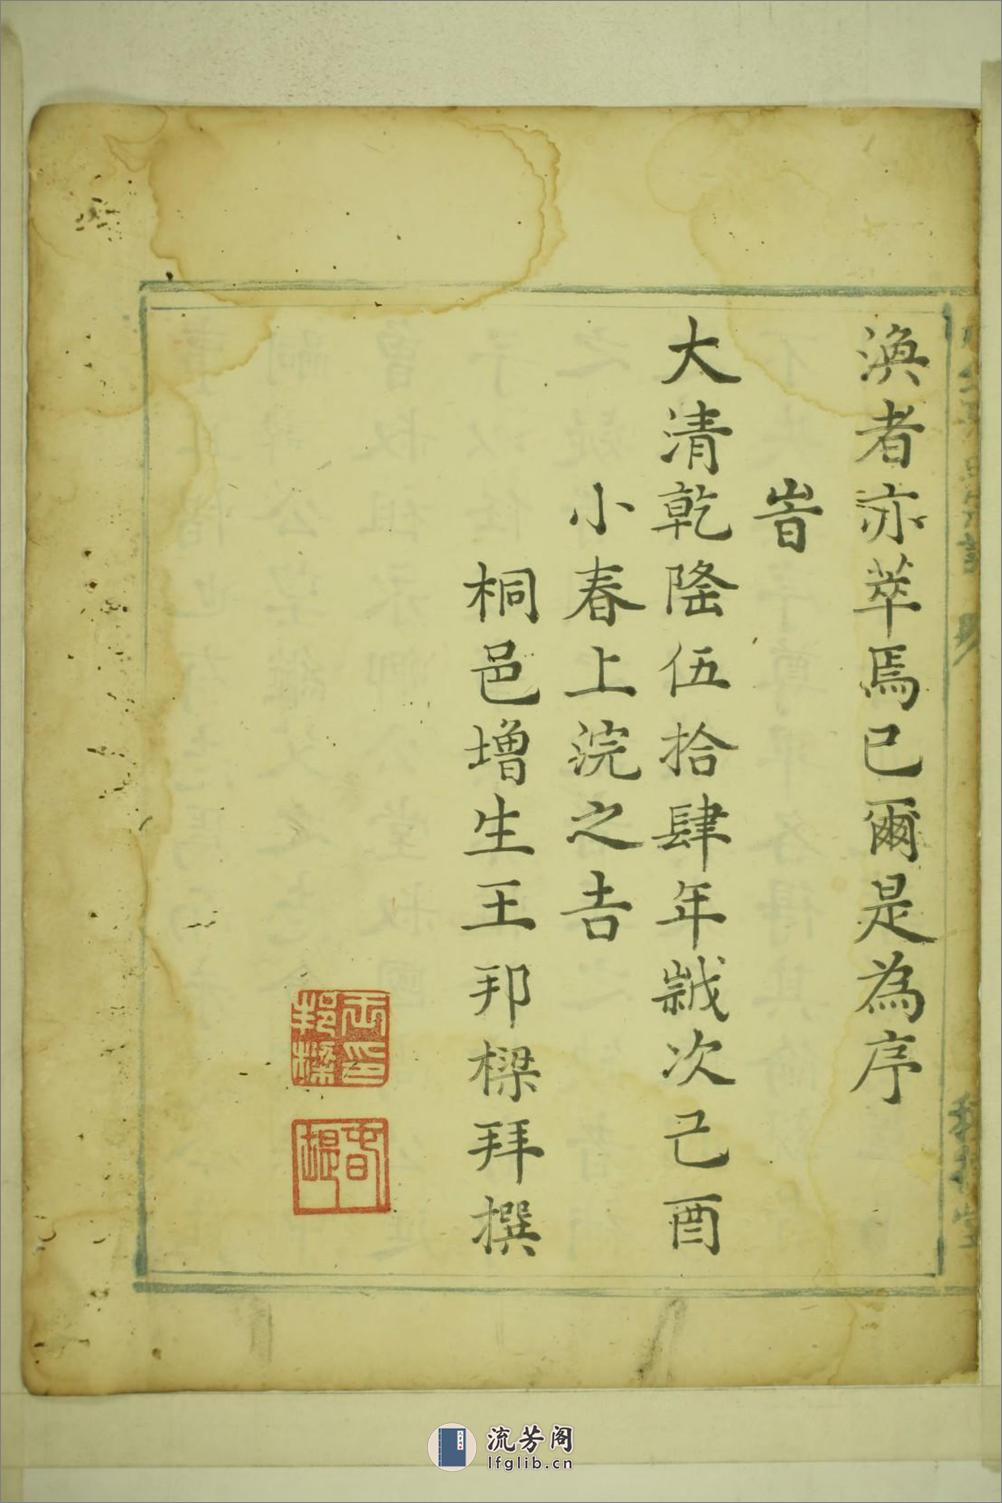 渙者亦萃焉已爾是為序
旹
大清乾隆伍拾肆年歲次己酉
小春上浣之吉
桐邑增生王邦樑拜撰
王印邦樑
流芳阁
lfglib.cn